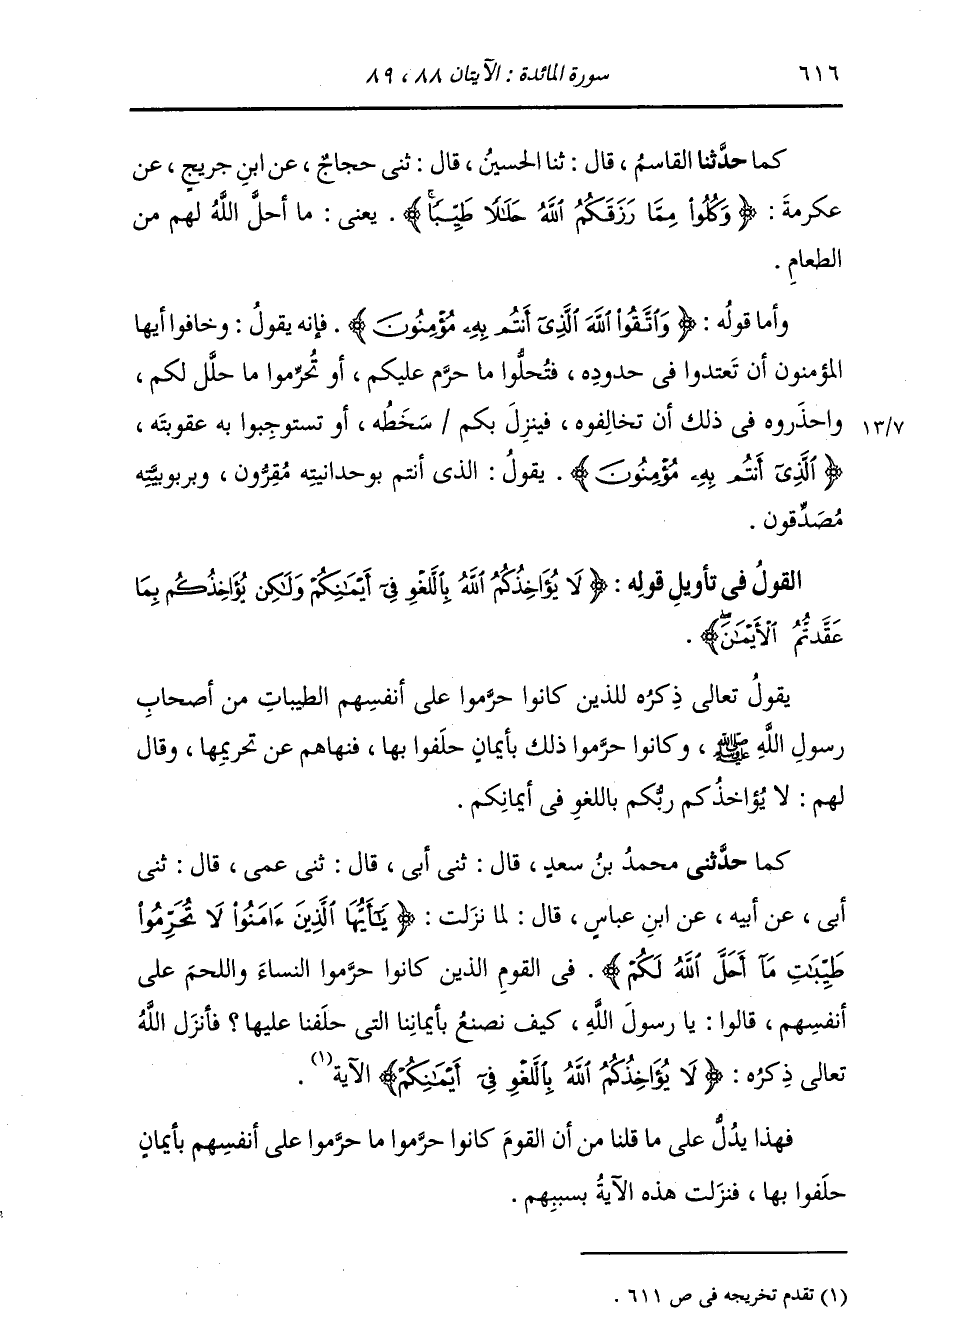 ٦١٦ سورة المائدة : الآيتان ٨٨ ، ٨٩
كما حدَّثنا القاسمُ ، قال : ثنا الحسينُ ، قال : ثنى حجاجٌ ، عن ابنِ جريجٍ ، عن
عكرمةَ : ﴿ وَكُلُواْ مِمَّا رَزَقَكُمُ ٱللَّهُ حَلَٰلًا طَيِّبٗاۚ ﴾ . يعنى : ما أحلَّ اللَّهُ لهم من
الطعامِ .
وأما قولُه : ﴿ وَٱتَّقُواْ ٱللَّهَ ٱلَّذِىٓ أَنتُم بِهِۦ مُؤْمِنُونَ ﴾ . فإنه يقولُ : وخافوا أيها
المؤمنون أن تَعتدوا فى حدودِه ، فتُحلُّوا ما حرَّم عليكم ، أو تُحرِّموا ما حلَّل لكم ،
واحذَروه فى ذلك أن تخالِفوه ، فينزِلَ بكم / سَخَطُه ، أو تستوجِبوا به عقوبتَه ، ١٣/٧
﴿ ٱلَّذِىٓ أَنتُم بِهِۦ مُؤْمِنُونَ ﴾ . يقولُ : الذى أنتم بوحدانيتِه مُقِرُّون ، وبربوبيَّتِه
مُصَدِّقون .
القولُ فى تأويلِ قولِه : ﴿ لَا يُؤَاخِذُكُمُ ٱللَّهُ بِٱللَّغْوِ فِىٓ أَيْمَٰنِكُمْ وَلَٰكِن يُؤَاخِذُكُم بِمَا
عَقَّدتُّمُ ٱلْأَيْمَٰنَۖ ﴾ .
يقولُ تعالى ذِكرُه للذين كانوا حرَّموا على أنفسِهم الطيباتِ من أصحابِ
رسولِ اللَّهِ ﷺ ، وكانوا حرَّموا ذلك بأيمانٍ حلَفوا بها ، فنهاهم عن تحريمِها ، وقال
لهم : لا يُؤاخذُكم ربُّكم باللغوِ فى أيمانِكم .
كما حدَّثنى محمدُ بنُ سعدٍ ، قال : ثنى أبى ، قال : ثنى عمى ، قال : ثنى
أبى ، عن أبيه ، عن ابنِ عباسٍ ، قال : لما نزَلت : ﴿ يَٰٓأَيُّهَا ٱلَّذِينَ ءَامَنُواْ لَا تُحَرِّمُواْ
طَيِّبَٰتِ مَآ أَحَلَّ ٱللَّهُ لَكُمْ ﴾ . فى القومِ الذين كانوا حرَّموا النساءَ واللحمَ على
أنفسِهم ، قالوا : يا رسولَ اللَّهِ ، كيف نصنعُ بأيمانِنا التى حلَفنا عليها ؟ فأنزَل اللَّهُ
تعالى ذِكرُه : ﴿ لَا يُؤَاخِذُكُمُ ٱللَّهُ بِٱللَّغْوِ فِىٓ أَيْمَٰنِكُمْ ﴾ الآية (١) .
فهذا يدُلُّ على ما قلنا من أن القومَ كانوا حرَّموا ما حرَّموا على أنفسِهم بأيمانٍ
حلَفوا بها ، فنزَلت هذه الآيةُ بسببِهم .
(١) تقدم تخريجه فى ص ٦١١ .